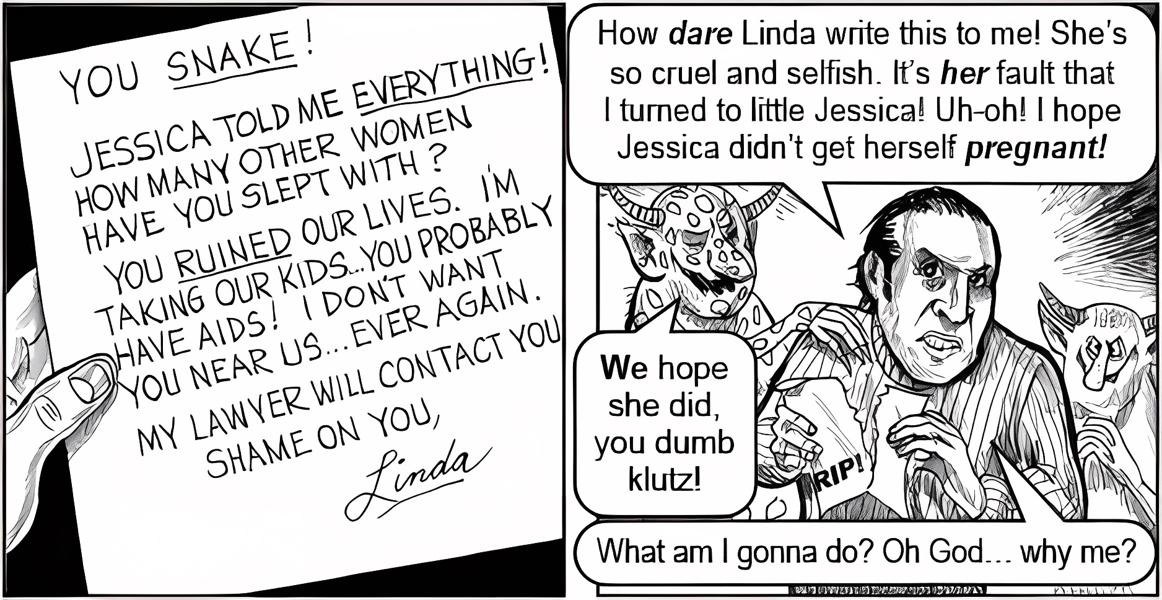 YOU SNAKE!
JESSICA TOLD ME EVERYTHING!
HOW MANY OTHER WOMEN
HAVE YOU SLEPT WITH?
YOU RUINED OUR LIVES. I'M
TAKING OUR KIDS...YOU PROBABLY
HAVE AIDS! I DON'T WANT
YOU NEAR US...EVER AGAIN.
MY LAWYER WILL CONTACT YOU
SHAME ON YOU,
Linda
How dare Linda write this to me! She's
so cruel and selfish. It's her fault that
I turned to little Jessica! Uh-oh! I hope
Jessica didn't get herself pregnant!
We hope
she did,
you dumb
klutz!
RIP!
What am I gonna do? Oh God... why me?